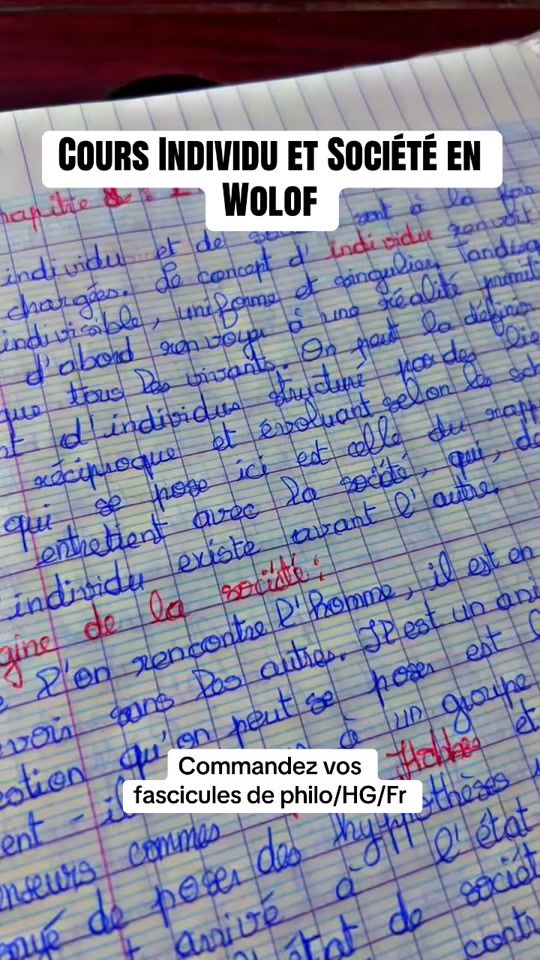 COURS INDIVIDU ET SOCIÉTÉ EN
WOLOF
hapitre
individu et de sont à la fois
chargées. Le concept d'individu renvoit
indivisible, uniforme et singulier. Tandis
d'abord renvoyer à une réalité primit
que tous les vivants. On peut la définir
t d'individus structuré par des lie
réciproque et évoluant selon les sch
qui se pose ici est celle du rapp
entretient avec la société, qui, de
'individu existe avant l'autre.
gine de la société :
l'on rencontre l'homme, il est en
voir sans les autres. Il est un ani
estion qu'on peut se poser est
à un groupe
Commandez vos
fascicules de philo/HG/Fr
ent - il Hobbes et
enseurs commes des hyppothèses
de poser
arrivé à l'état
état de sociét
contr